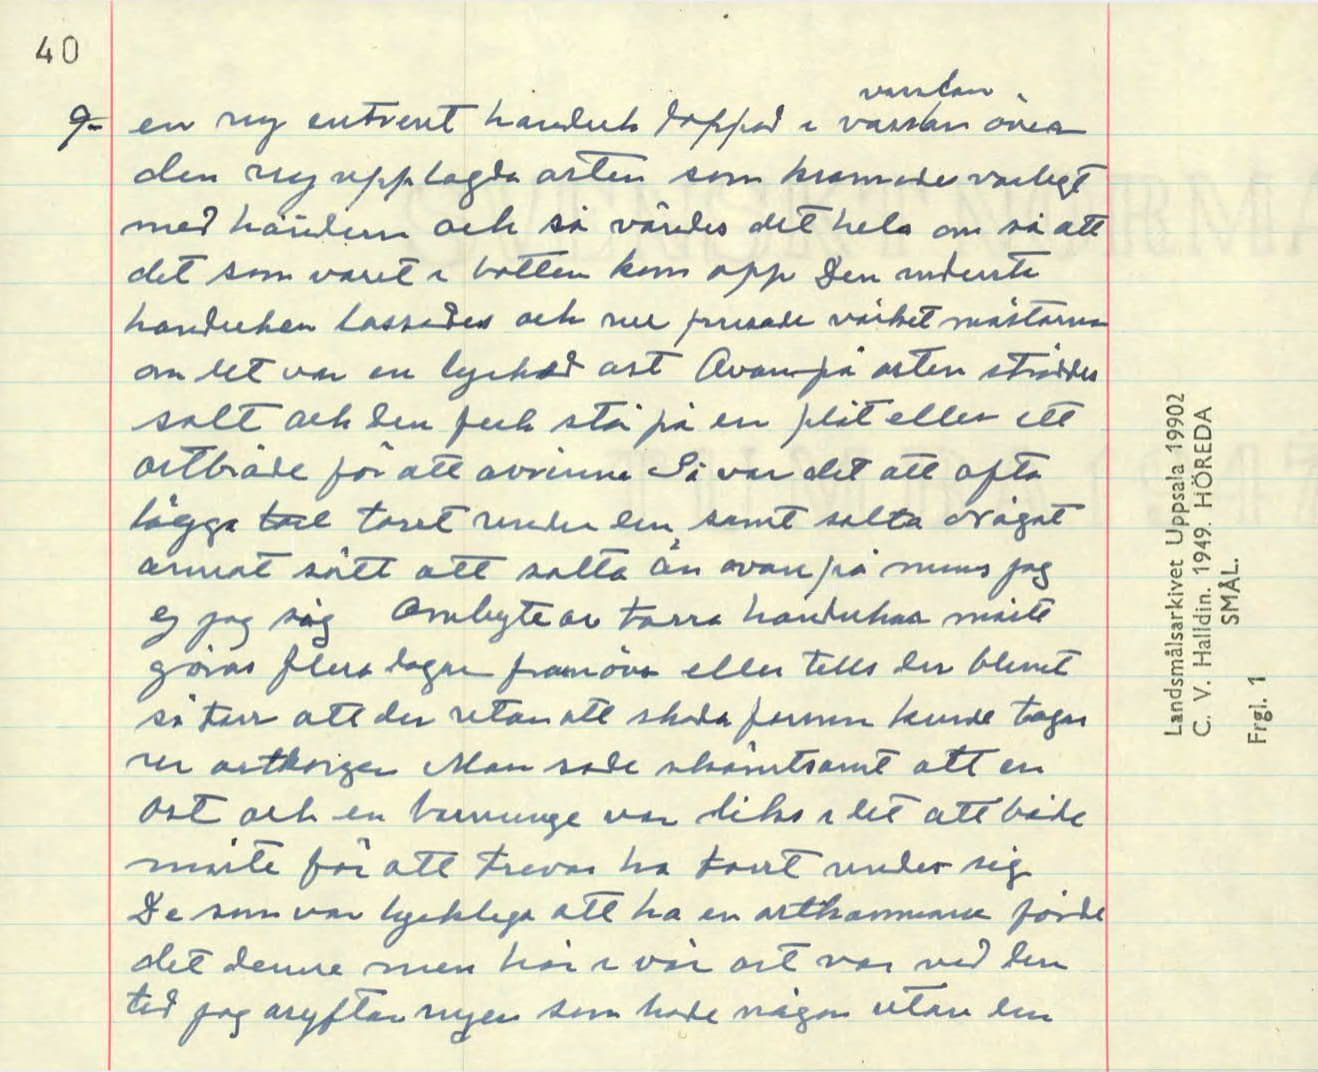 40
vasslan
9- en ny urtvent handuk doppad i vasslan över
den ny upplagda osten som kramade varligt
med händern och så vändes det hela om så att
det som varet i botten kom opp Den understa
handuken lossades och nu prisade värket mästarna
om det var en lyckad ost Ovan på osten ströddes
salt och den feck stå på en plåt eller ett
ostbräde för att avrinna Så var det att ofta
lägga torrt under den, samt salta något
annat sätt att salta än ovan på minns jag
ej jag såg Ombyte av torra handukar måste
göras flera dagar framöver eller tells den blevet
så torr att den utan att skada formen kunde tagas
ur ostkorgen Man sade skämtsamt att en
ost och en barnunge var lika i det att båda
måste för att trevas ha torrt under sig
De som var lyckliga att ha en ostkammare förde
det denne men här i vår ort var ved den
ted jag asyftar ingen som hade någon utan den
Landsmålsarkivet Uppsala 19902
C. V. Halldin. 1949. HÖREDA
SMÅL.
Frgl. 1